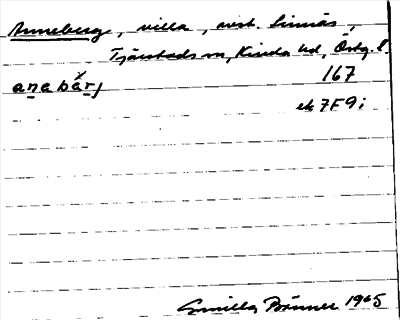 Anneberg, villa, väst. Linnäs,
Tjärstads sn, Kinda hd, Östg. l.
anabärj 167
ek 7F9i
Gunilla Brånner 1965